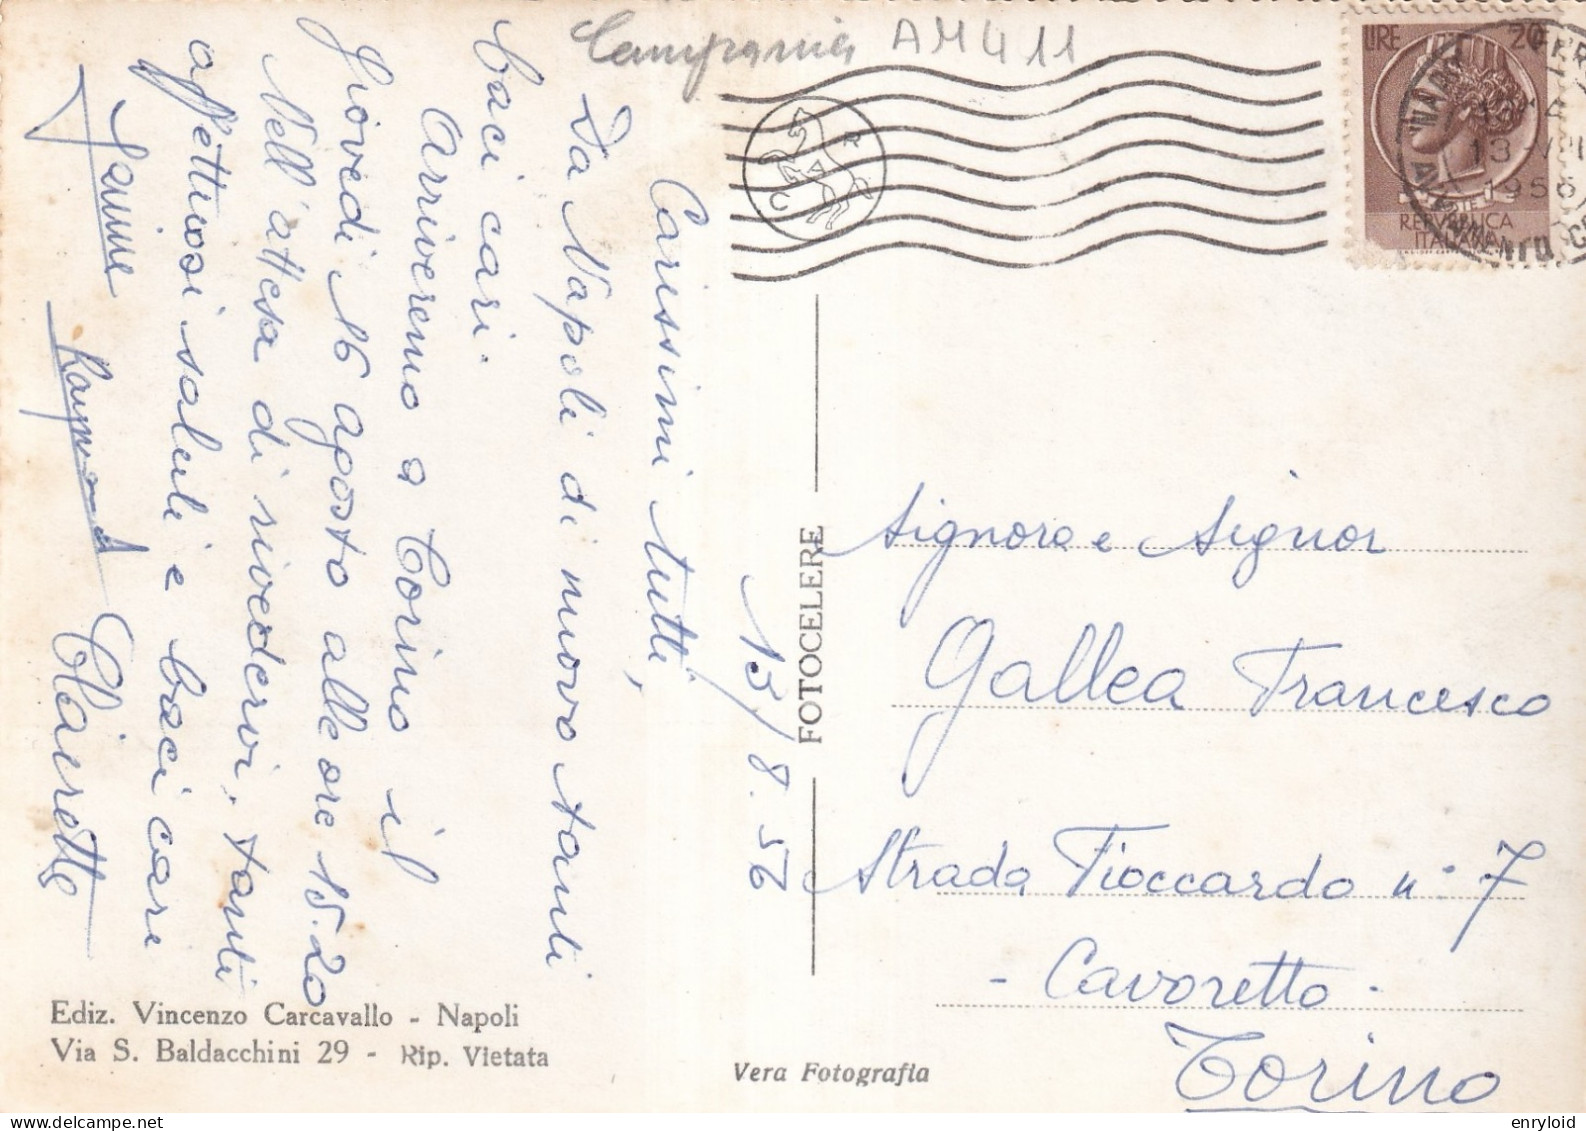 Campania AM411
LIRE 20
REPVBBLICA
ITALIANA
13 VIII
1956
R
C
Carissimi tutti,
Da Napoli di nuovo tanti
baci cari.
Arriveremo a Torino il
Giovedi 16 agosto alle ore 15.20
Nell'attesa di rivedervi, tanti
affettuosi saluti e baci care
Jeanne Raymond Clairette
13/8.56
FOTOCELERE
Signora e Signor
Gallea Francesco
Strada Fioccardo n° 7
- Cavoretto -
Torino
Ediz. Vincenzo Carcavallo - Napoli
Via S. Baldacchini 29 - Rip. Vietata
Vera Fotografia
enryloid
delcampe.net